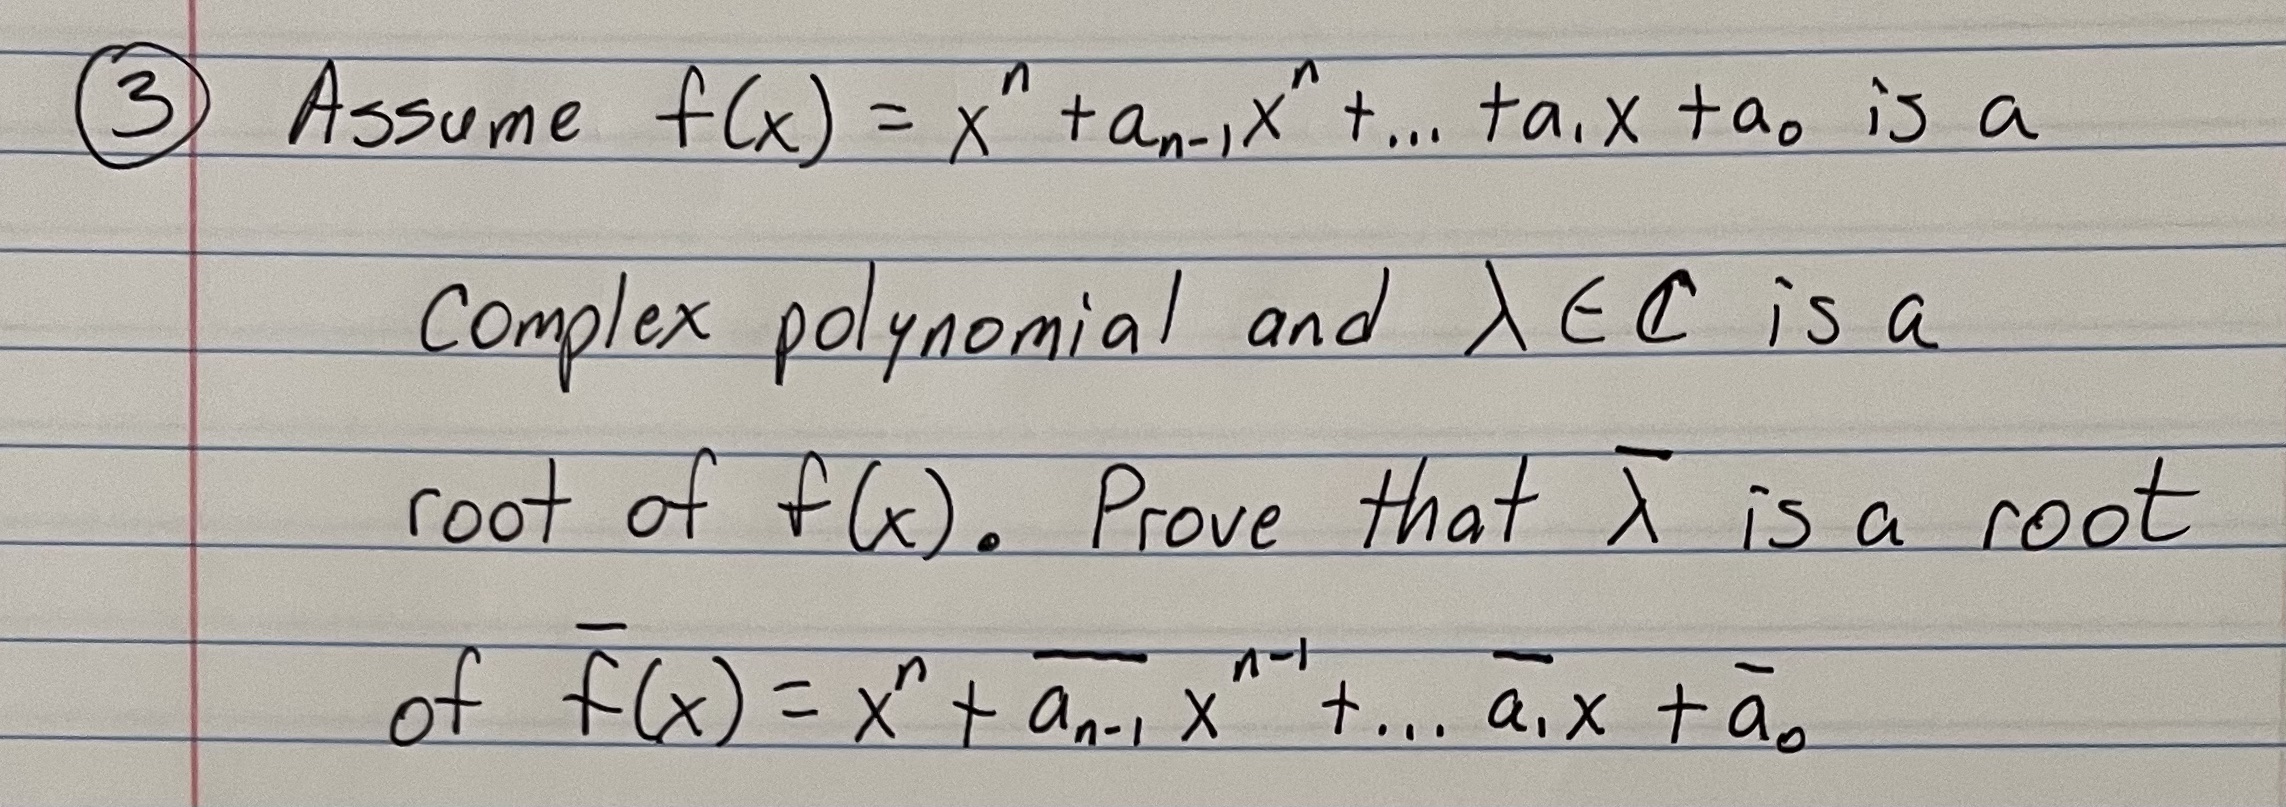 ③ Assume f(x) = xⁿ + aₙ₋₁xⁿ + ... + a₁x + a₀ is a
Complex polynomial and λ ∈ ℂ is a
root of f(x). Prove that λ̅ is a root
of f̅(x) = xⁿ + a̅ₙ₋₁ xⁿ⁻¹ + ... a̅₁x + a̅₀